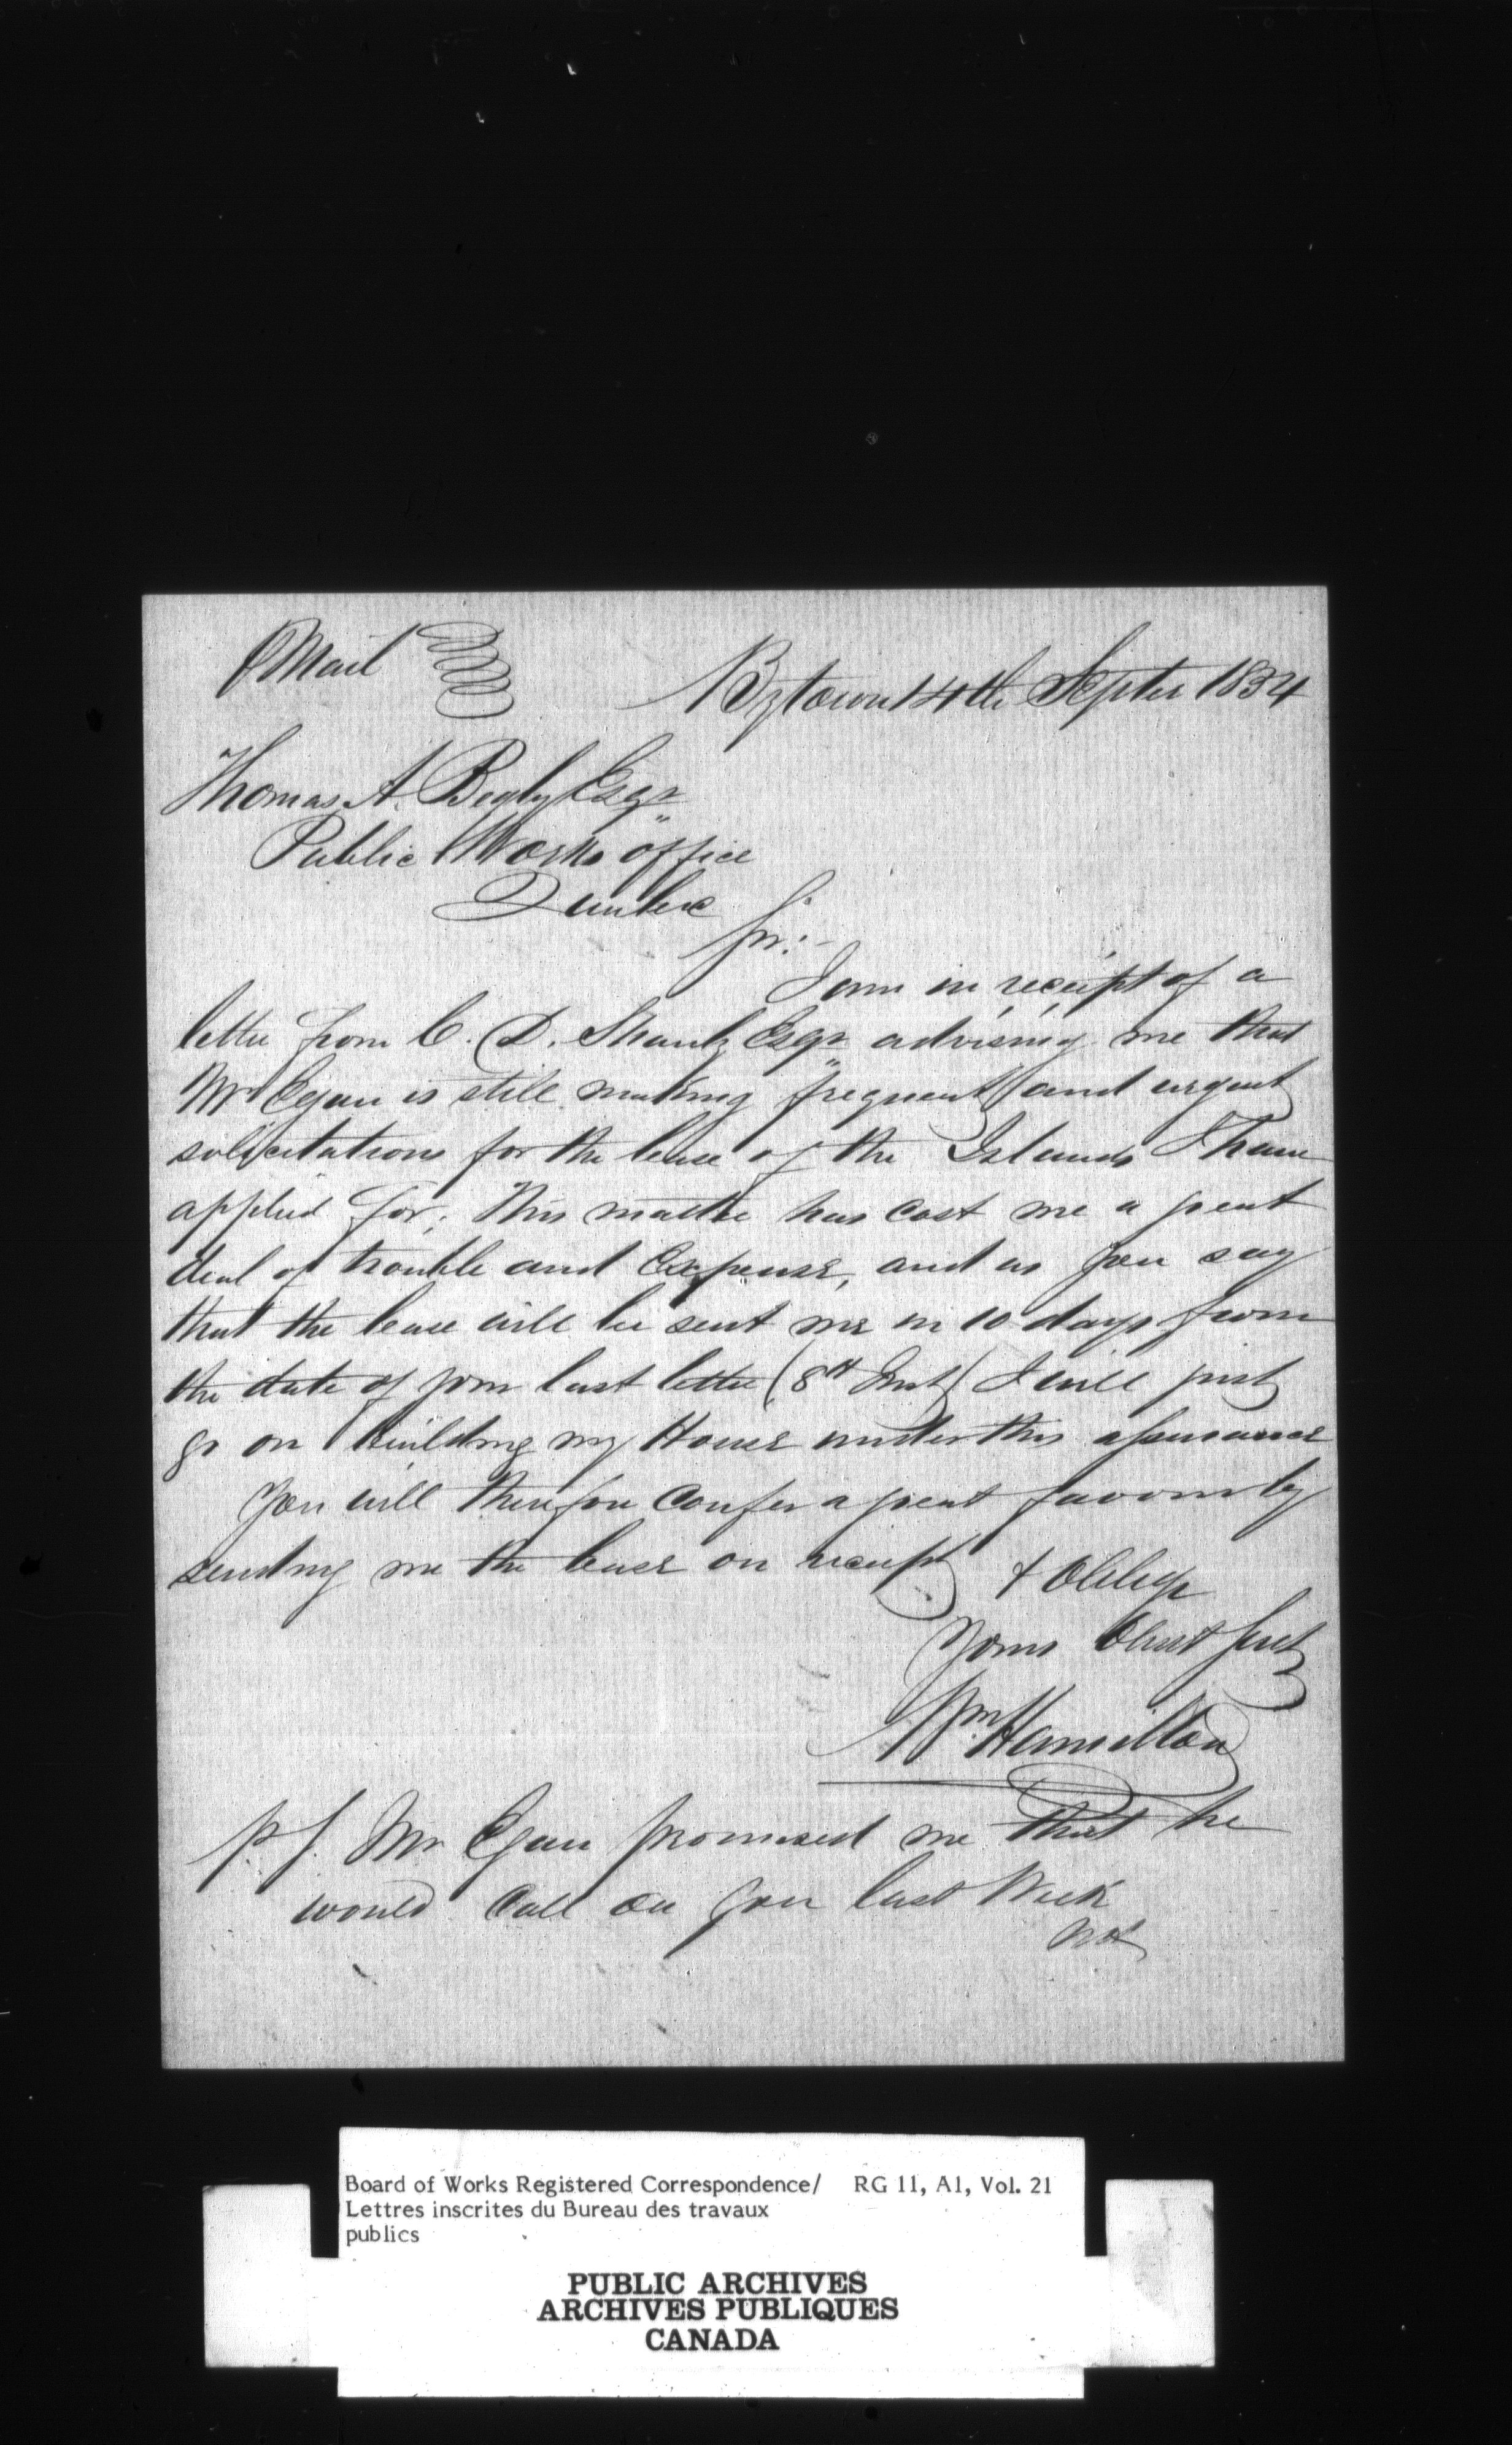 Mail
Bytown 14th Septer 1854
Thomas A. Begly Esqr
Public Works office
Quebec
Sir:-
I am in receipt of a
letter from C. D. Shanly Esqr advising me that
Mr Egan is still making frequent and urgent
solicitations for the lease of the Islands I have
applied for; This matter has cost me a great
deal of trouble and Expense, and as you say
that the lease will be sent me in 10 days from
the date of your last letter (8th Inst) I will just
go on building my House under this assurance
You will therefore Confer a great favour by
sending me the lease on receipt & Oblige
Yours Obedt Servt
Wm Hamilton
P.S. Mr Egan promised me that he
would Call on you last Week
Board of Works Registered Correspondence/ RG 11, A1, Vol. 21
Lettres inscrites du Bureau des travaux
publics
PUBLIC ARCHIVES
ARCHIVES PUBLIQUES
CANADA